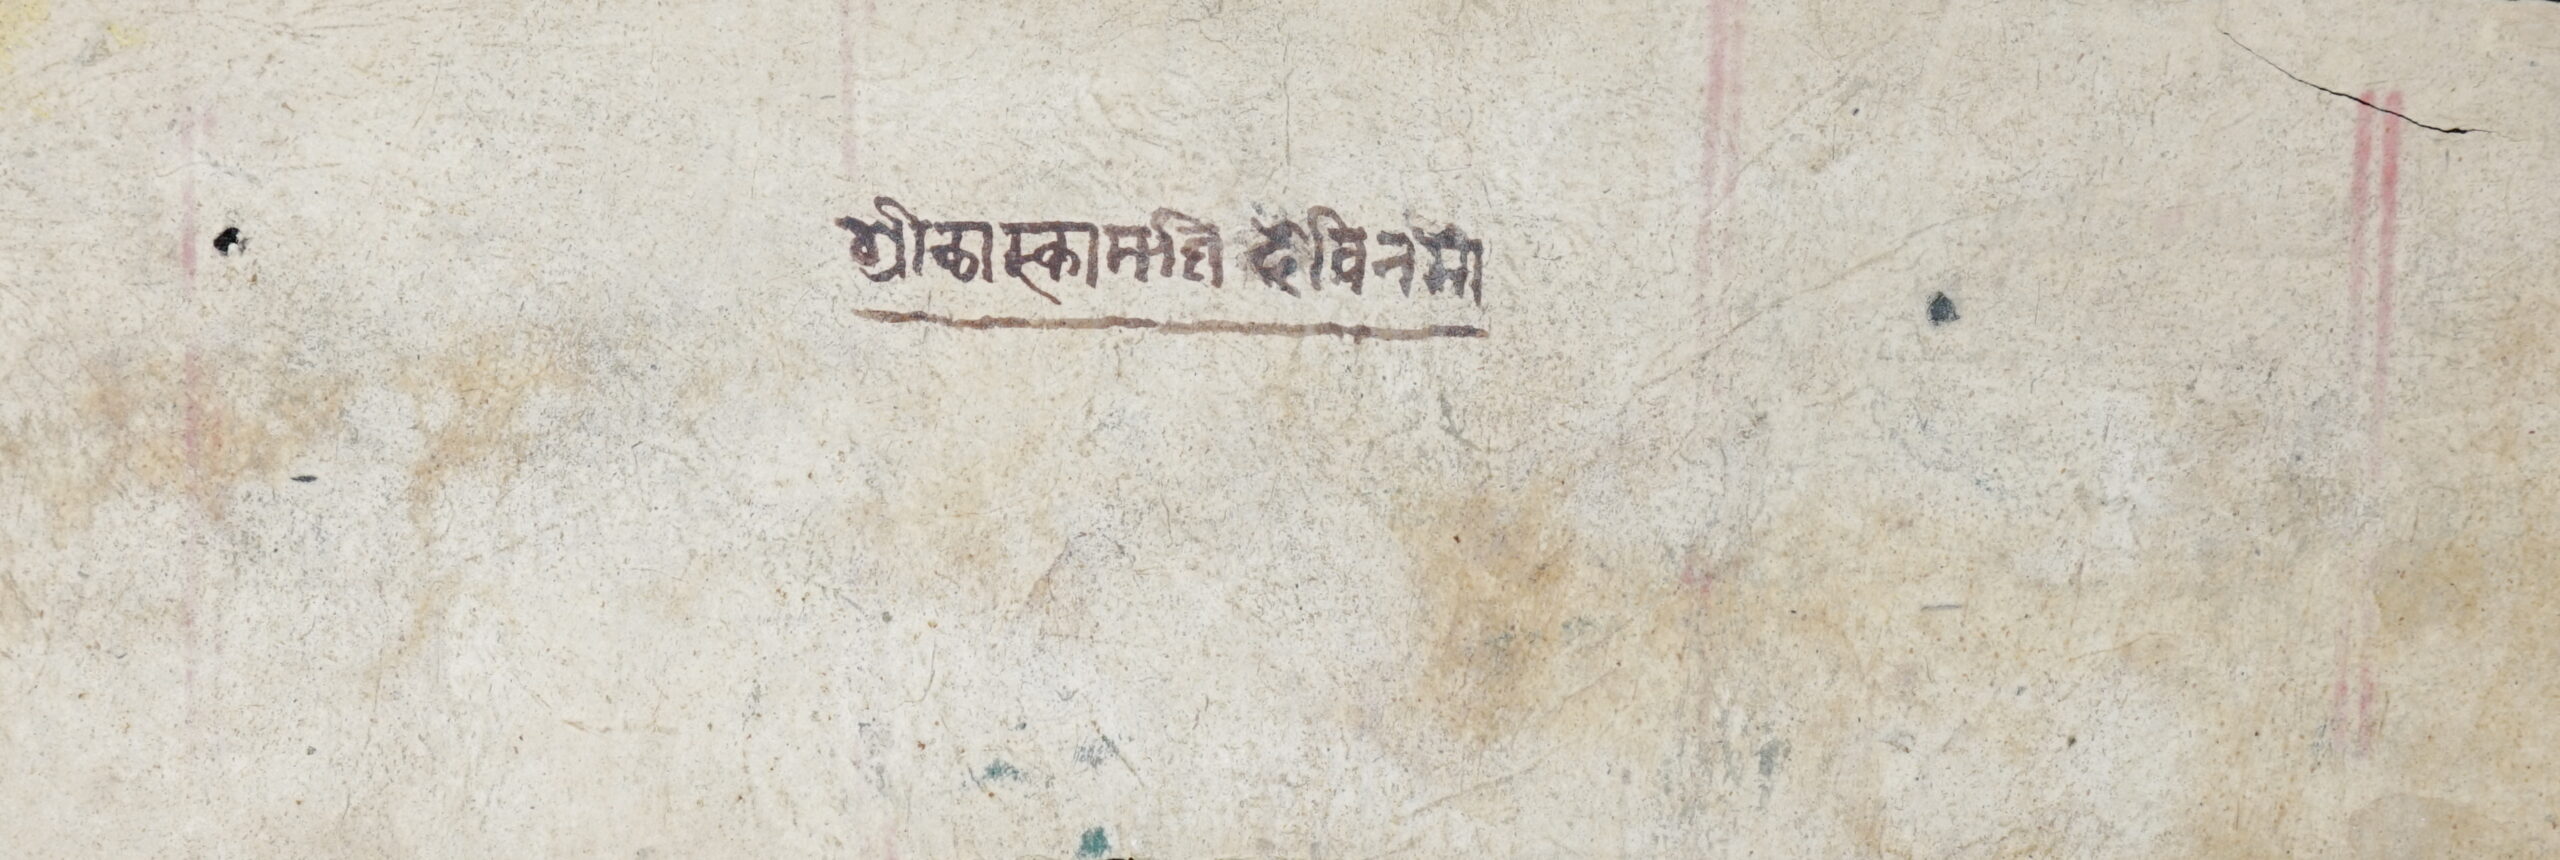 श्रीकास्कामनि देविनमो